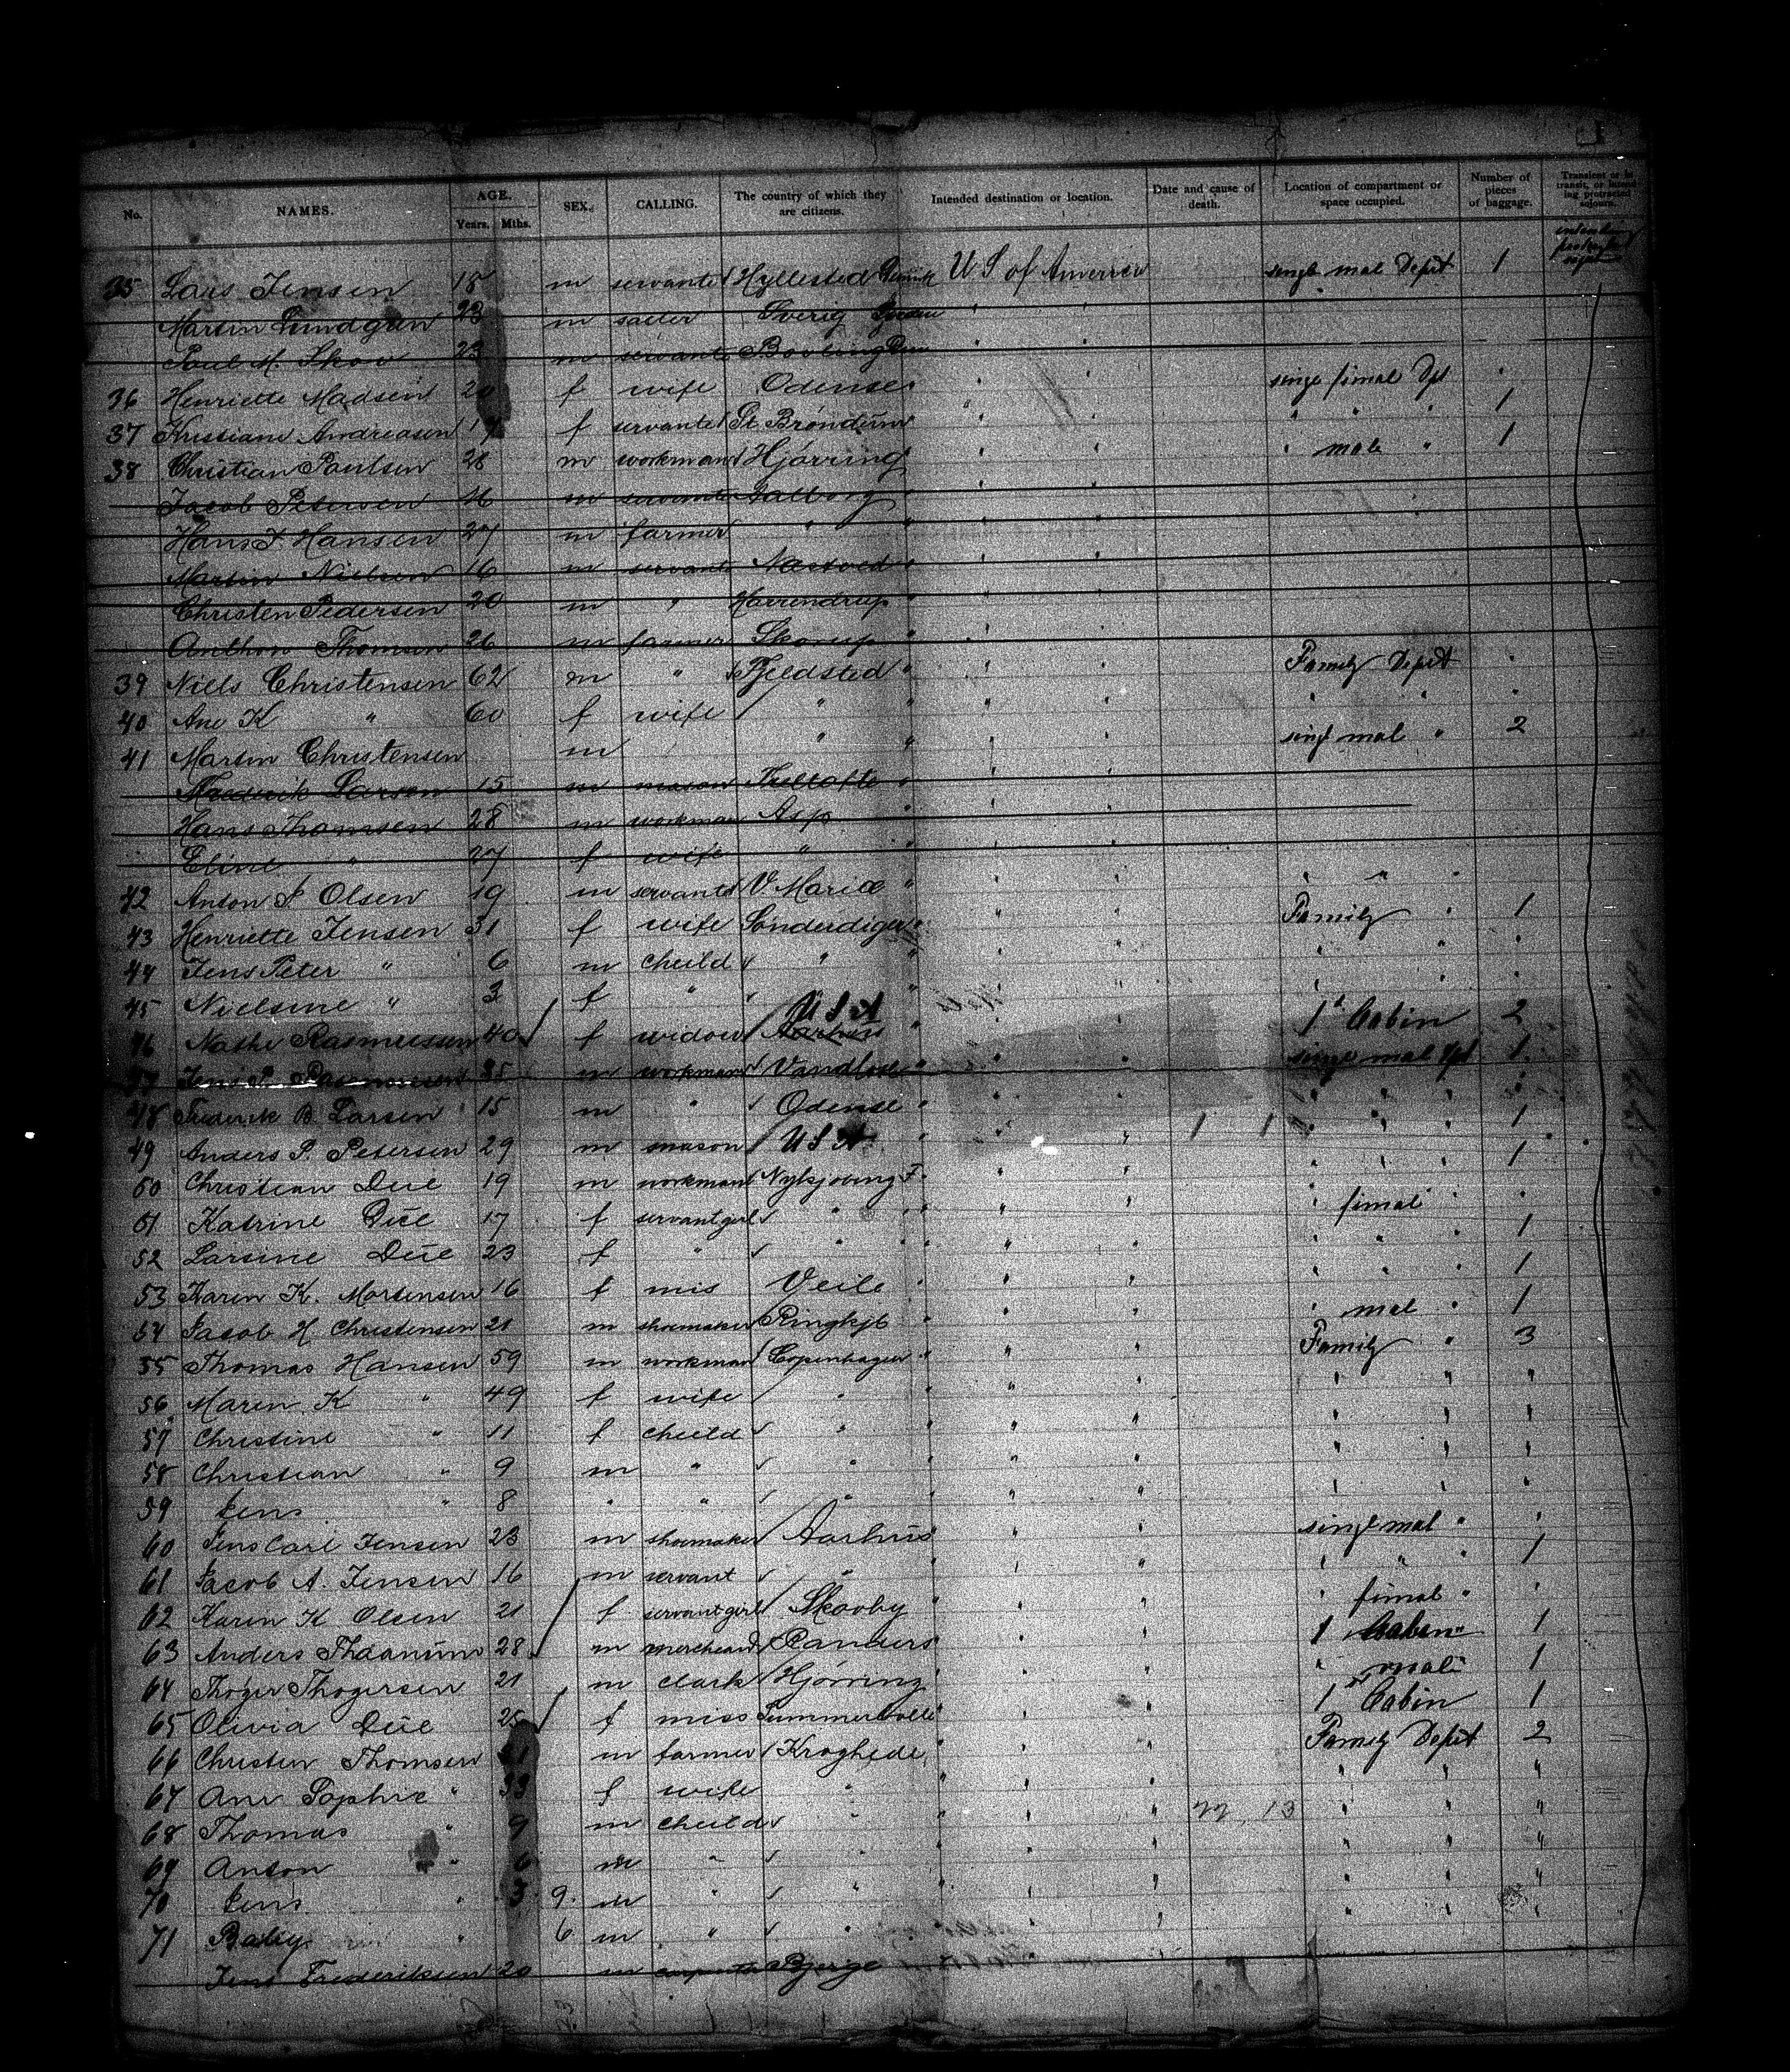 No. NAMES. AGE. Years. Mths. SEX. CALLING. The country of which they are citizens. Intended destination or location. Date and cause of death. Location of compartment or space occupied. Number of pieces of baggage. Transient or in transit, or intending protracted sojourn.
35 Lars Jensen 18 m servante Hyllested U S of America single mal Depit 1 intending
Martin Lundgren 23 m Sverig "
Poul M. Skov 23 m servante "
36 Henriette Madsen f wife Odense " " singe fimal Dpt "
37 Kristiane Andreasen f servante St. Brøndum " " " " " 1
38 Christian Paulsen 28 m workman Hjørring " " " male " 1
Jacob Petersen 16 m servante Aalborg " "
Hans J Hansen 27 m farmer " " " "
Martin Nielsen 16 m servante Næstved " " "
Christen Pedersen 20 m " Harrendrup " " "
Anthon Thomsen 26 m farmer Skorup " " "
39 Niels Christensen 62 m " Fjeldsted " " " Family Depit "
40 Ane K " 60 f wife " " " " " "
41 Martin Christensen m " " " " singl mal " 2
Frederik Larsen 15 m mason " " "
Hans Thomsen 28 m workman Asp " " "
Eline " 27 f wife " " " "
42 Anton P Olsen 19 m servante V Mariæ " " " " " "
43 Henriette Jensen 31 f wife Sönderdiger " " " Family " 1
44 Jens Peter " 6 m cheild " " " " " " "
45 Nielsine " 3 f " " " " " "
U S A
46 Rasmussen 40 f widow Aarhus " 1st Cabin 2
47 Jens P. Rasmussen 35 m workman Vandlöse " " " single mal Dpt 1
48 Frederik B. Larsen 15 m " Odense " " " " "
49 Anders P. Petersen 29 m mason U S A " " " " 1
50 Christian Düe 19 m workman Nykjøbing F. " " " " " 1
51 Katrine Düe 17 f servant girl " " " " " fimal "
52 Larsine Düe 23 f " " " " " " " 1
53 Karen K. Mortensen 16 f mis Veile " " " " " " 1
54 Jacob H. Christensen 21 m shoemaker Ringkjb " " " " mal " 1
55 Thomas Hansen 59 m workman Copenhagen " " " Family " 3
56 Maren K " 49 f wife " " " " " " "
57 Christine " 11 f cheild " " " " " " "
58 Christian " 9 m " " " " " " " "
59 Jens " 8 " " " " " " " " "
60 Jens Carl Jensen 23 m shoemaker Aarhus " " " singl mal " "
61 Jacob A. Jensen 16 m servant " " " " " " " 1
62 Karen K Olsen 21 f servant girl Skovby " " " " fimal " "
63 Anders Thaanum 28 m mercheand Randers " " " 1 Caben 1
64 Thöger Thögersen 21 m clark Hjörring " " " " mal 1
65 Olivia Düe 25 f miss " " " 1st Cabin 1
66 Christen Thomsen m farmer Kraghede " " " Family Depit 2
67 Ane Sophie " 33 f wife " " " " " " "
68 Thomas " 9 m cheild " " " " 22, 13 " " "
69 Anton " 6 m " " " " " " " "
70 Jens " 3 9 m " " " " " " " "
71 Baby " 6 m " " " " " " "
Jens Frederiksen 20 m Bjerge